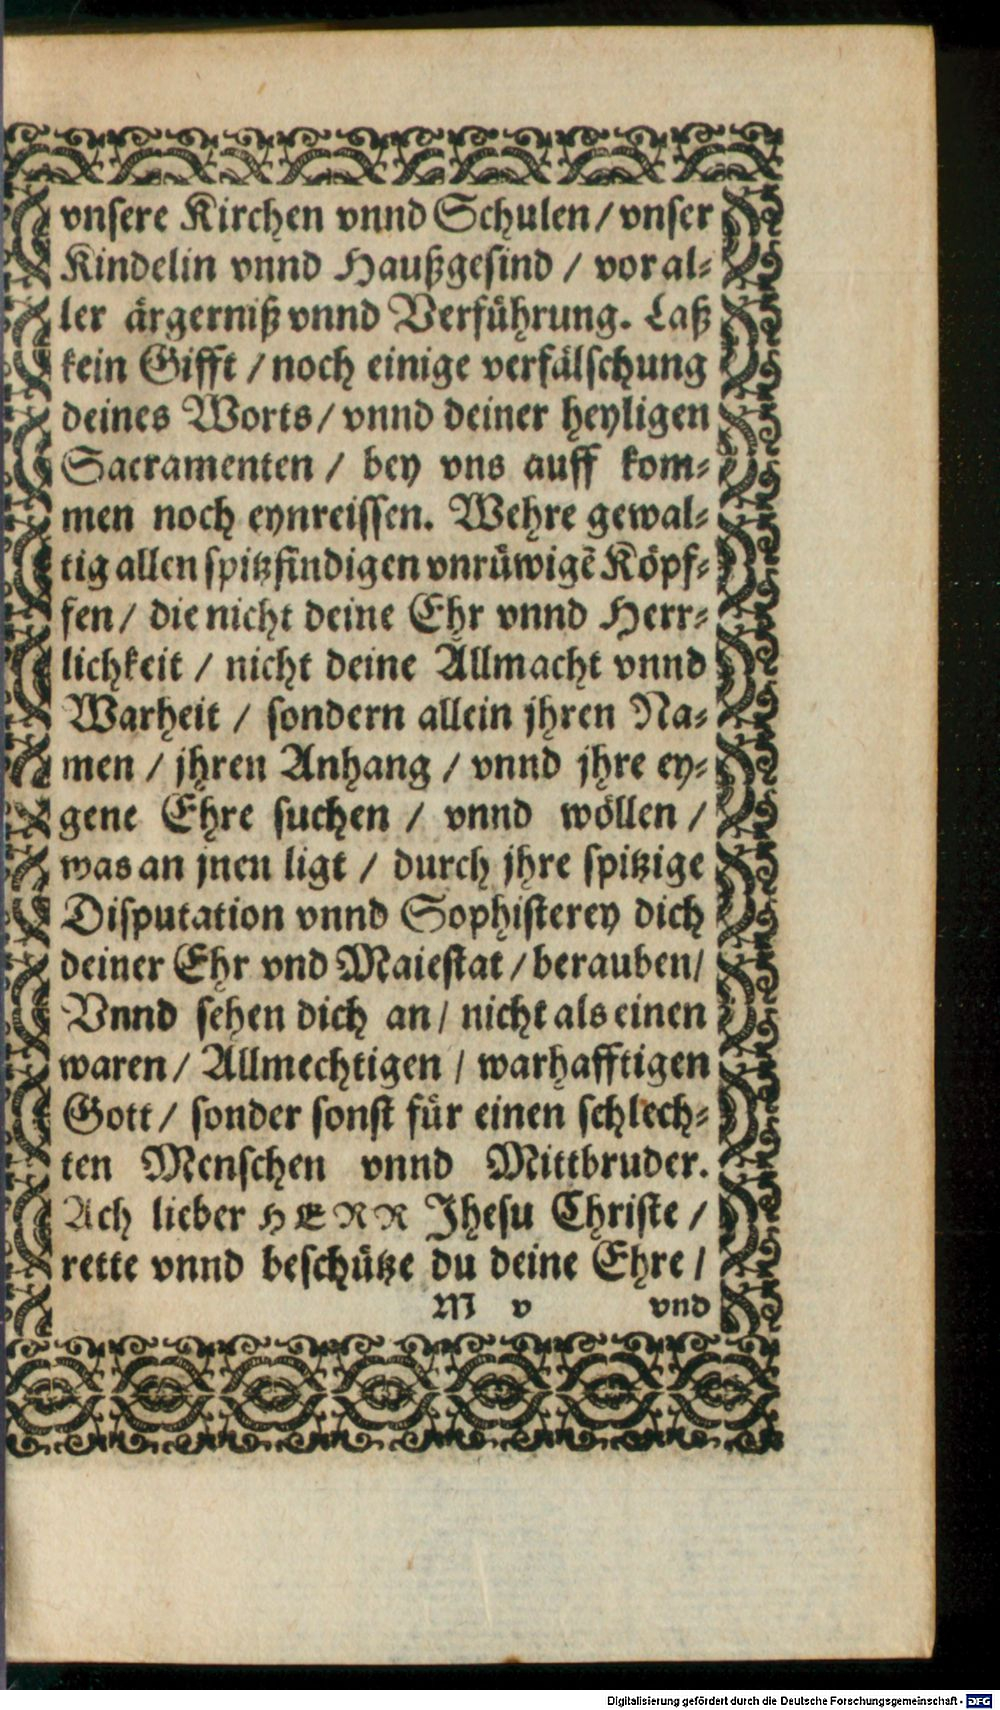 vnsere Kirchen vnnd Schulen / vnser
Kindelin vnnd Haußgesind / vor al⸗
ler ärgerniß vnnd Verführung. Laß
kein Gifft / noch einige verfälschung
deines Worts / vnnd deiner heyligen
Sacramenten / bey vns auff kom⸗
men noch eynreissen. Wehre gewal⸗
tig allen spitzfindigen vnrüwigẽ Köpf⸗
fen / die nicht deine Ehr vnnd Herr⸗
lichkeit / nicht deine Allmacht vnnd
Warheit / sondern allein jhren Na⸗
men / jhren Anhang / vnnd jhre ey⸗
gene Ehre suchen / vnnd wöllen /
was an jnen ligt / durch jhre spitzige
Disputation vnnd Sophisterey dich
deiner Ehr vnd Maiestat / berauben /
Vnnd sehen dich an / nicht als einen
waren / Allmechtigen / warhafftigen
Gott / sonder sonst für einen schlech⸗
ten Menschen vnnd Mittbruder.
Ach lieber HERR Jhesu Christe /
rette vnnd beschütze du deine Ehre /
M v vnd
Digitalisierung gefördert durch die Deutsche Forschungsgemeinschaft - DFG